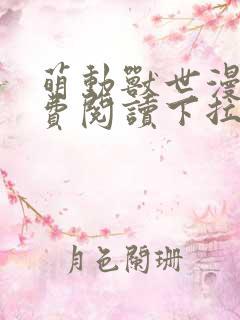 萌動獸世漫
費閱讀下拉
月色闌珊